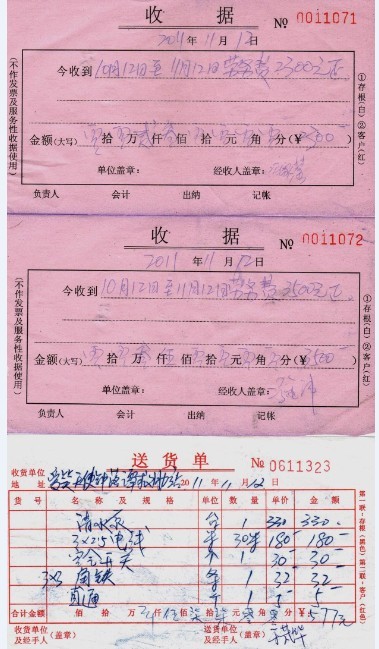 收 据 № 0011071
2011 年 11 月 12 日
今收到 10月12日至11月12日劳务费2300元正
金额(大写) 拾 万 仟 佰 拾 元 角 分(¥ 2300
单位盖章： 经收人盖章：
负责人 会计 出纳 记帐
(不作发票及服务性收据使用)
①存根(白)②客户(红)
收 据 № 0011072
2011 年 11 月 12 日
今收到 10月12日至11月12日劳务费3500元正
金额(大写) 拾 万 叁 仟 伍 佰 拾 元 角 分(¥ 3500
单位盖章： 经收人盖章：
负责人 会计 出纳 记帐
(不作发票及服务性收据使用)
①存根(白)②客户(红)
送 货 单 № 0611323
收货单位
地 址 2011 年 11 月 12 日
货 号 名 称 及 规 格 单位 数 量 单价 金 额
清水泵 台 1 330 330
3×2.5电线 米 30米 180 180
空气开关 1 30 30
3×3角铁 1 32 32
直通 1 5 5
合计金额 佰 拾 万 仟 伍 佰 柒 拾 柒 元 ¥ 577元
收货单位及经手人 (盖章) 送货单位及经手人 (盖章)
第一联·存根(黑色)第二联·客(红)